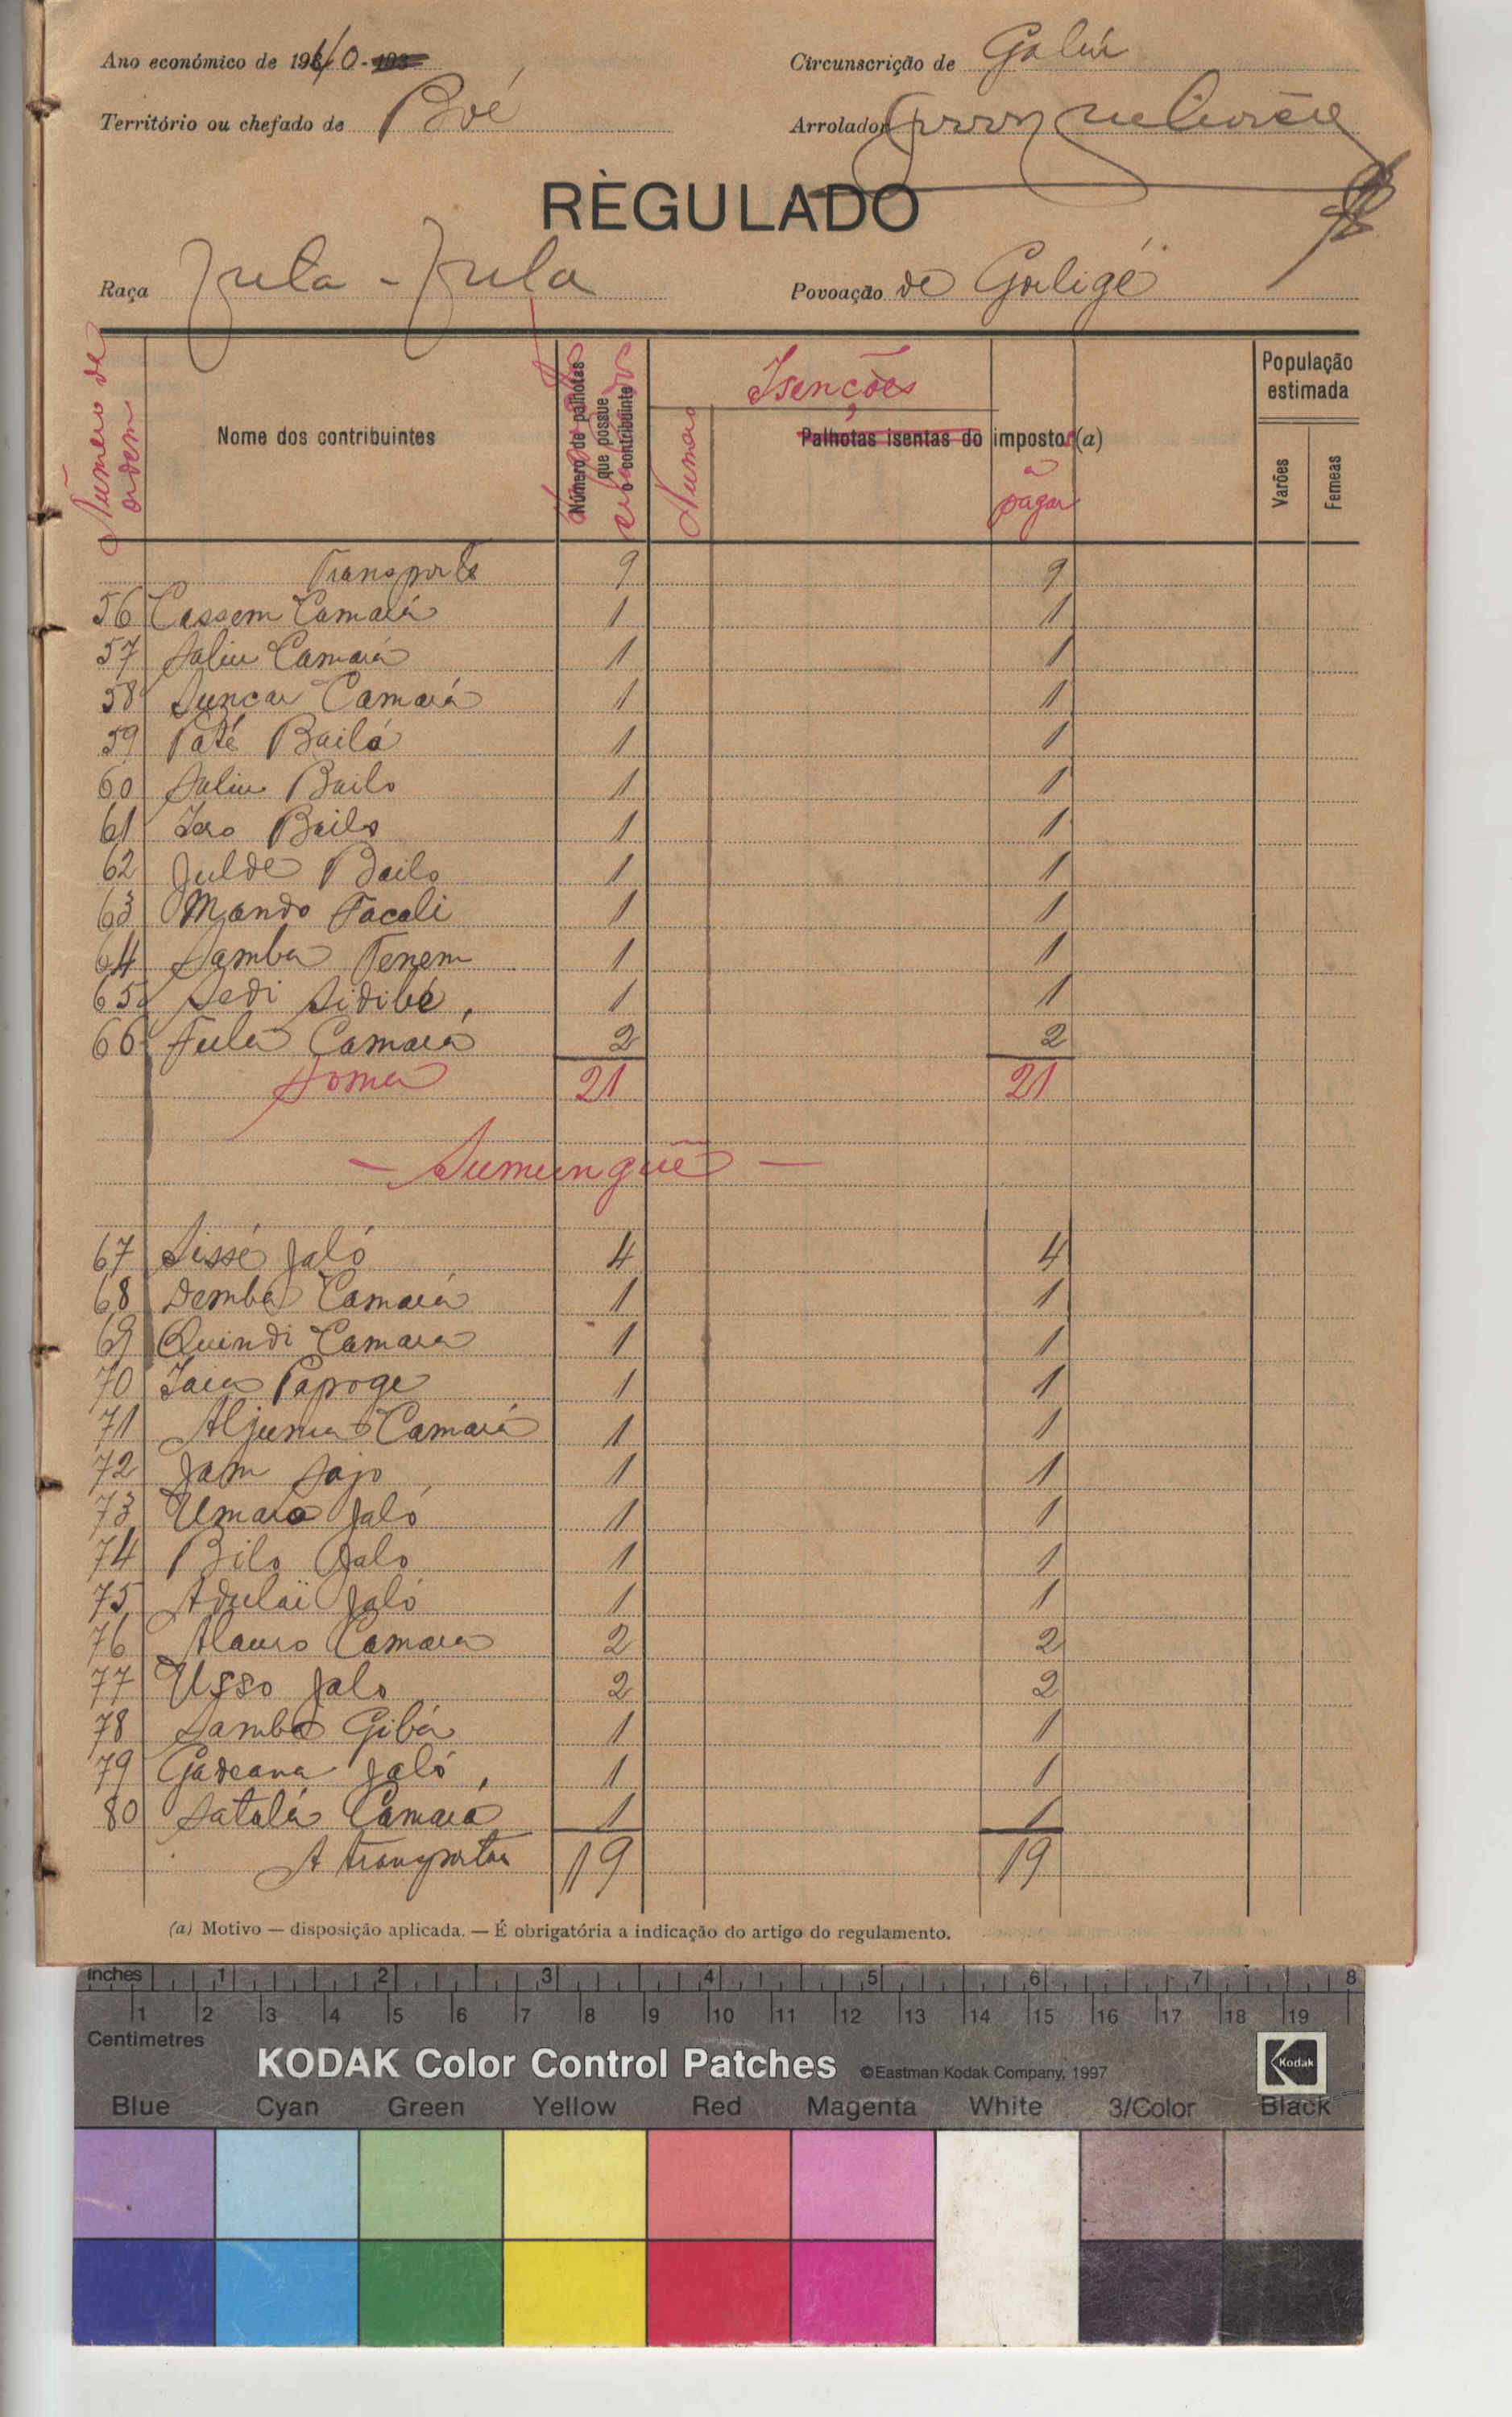 Ano económico de 1940-193
Circunscrição de Gabú
Território ou chefado de Boé
Arrolador
RÈGULADO
Raça Futa-Fula
Povoação de Galigé
Número de ordem
Nome dos contribuintes
Número de palhotas que possue o contribuinte
Isenções
Numero
Palhotas isentas do impostos (a)
a pagar
População estimada
Varões
Femeas
Transporte 9 9
56 Cassem Camará 1 1
57 Saliu Camará 1 1
58 Suncar Camará 1 1
59 Paté Bailó 1 1
60 Saliu Bailo 1 1
61 Iero Bailo 1 1
62 Julde Bailo 1 1
63 Mando Sacali 1 1
64 Samba Tenem 1 1
65 Sedi Sidibé 1 1
66 Fula Camará 2 2
Soma 21 21
— Sumunguê —
67 Sissé Jaló 4 4
68 Demba Camará 1 1
69 Quindi Camara 1 1
70 Iaia Papoge 1 1
71 Aljuma Camará 1 1
72 Jam Sajo 1 1
73 Umaro Jaló 1 1
74 Bilo Jalo 1 1
75 Adulai Jaló 1 1
76 Camara 2 2
77 Usso Jalo 2 2
78 Samba Gibá 1 1
79 Gadeana Jaló 1 1
80 Satalá Camará 1 1
A transportar 19 19
(a) Motivo — disposição aplicada. — É obrigatória a indicação do artigo do regulamento.
inches 1 2 3 4 5 6 7 8
1 2 3 4 5 6 7 8 9 10 11 12 13 14 15 16 17 18 19
Centimetres
KODAK Color Control Patches ©Eastman Kodak Company, 1997 Kodak
Blue Cyan Green Yellow Red Magenta White 3/Color Black